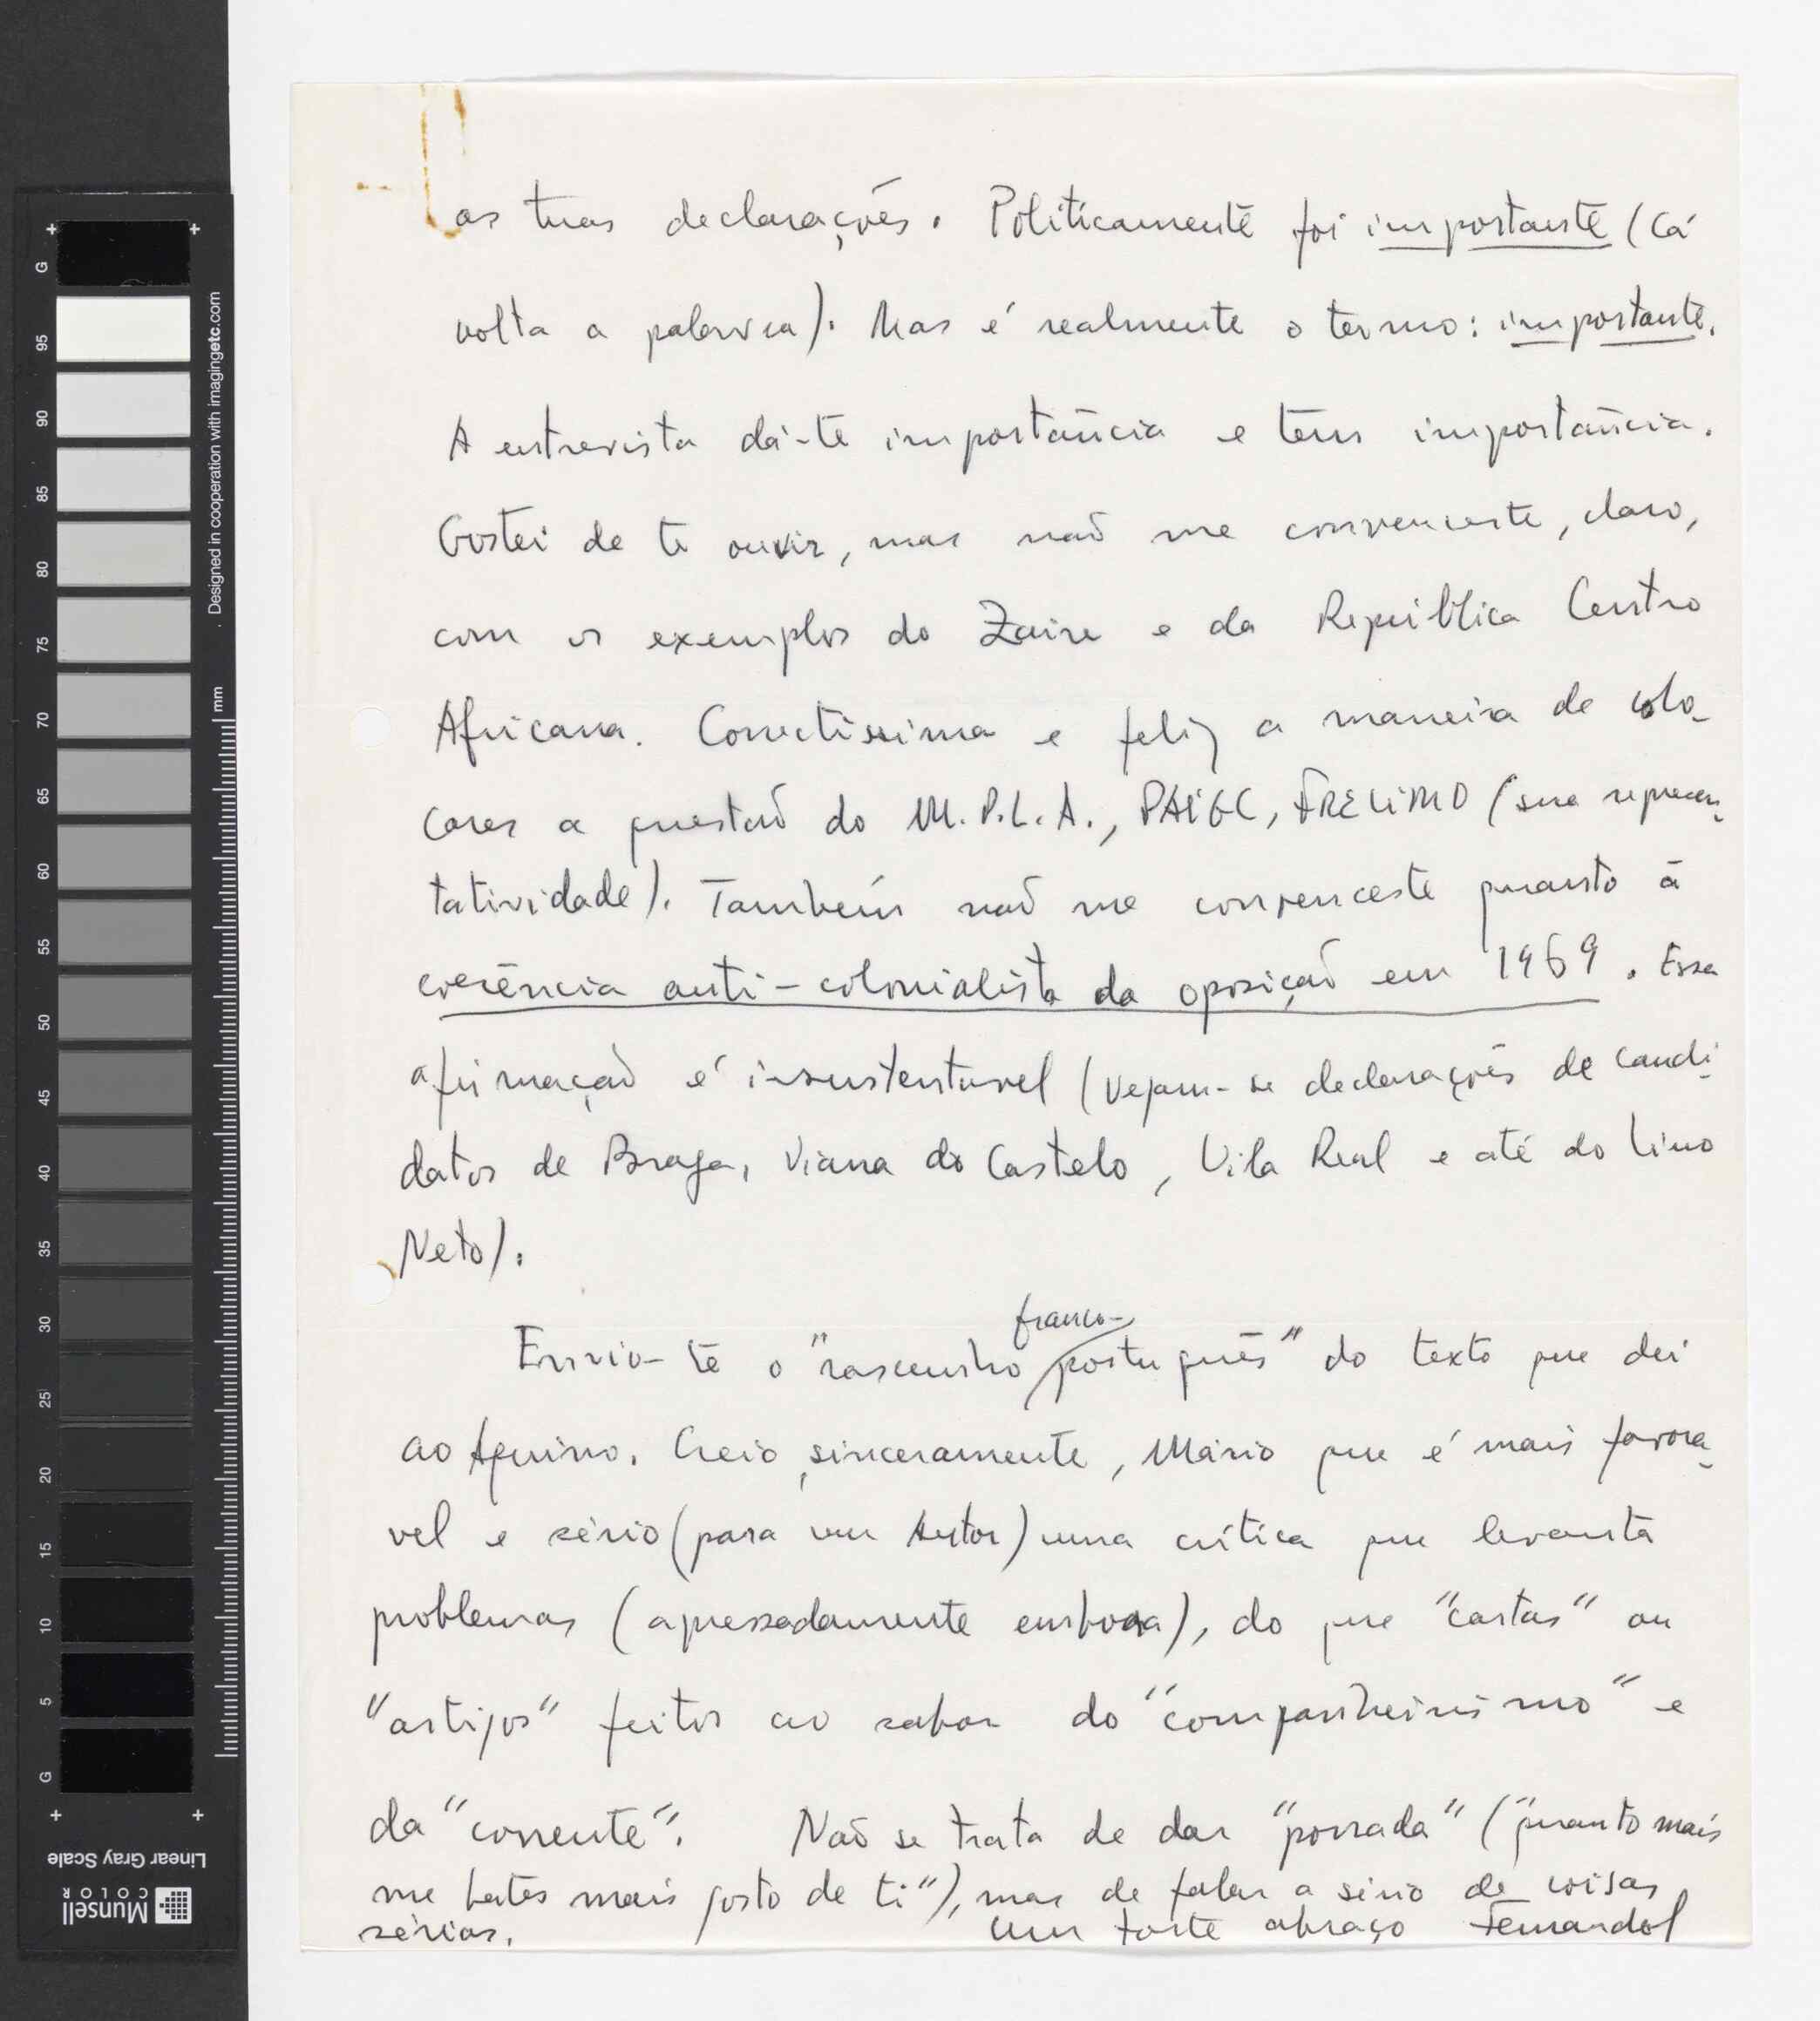 as tuas declarações. Politicamente foi importante (Cá
volta a palavra). Mas é realmente o termo: importante.
A entrevista dá-te importância e tem importância.
Gostei de te ouvir, mas não me convenceste, claro,
com os exemplos do Zaire e da República Centro
Africana. Correctíssima e feliz a maneira de colo-
cares a questão do M.P.L.A., PAIGC, FRELIMO (sua represen-
tatividade). Também não me convenceste quanto à
coerência anti-colonialista da oposição em 1969. Essa
afirmação é insustentavel (vejam-se declarações de candi-
datos de Braga, Viana do Castelo, Vila Real e até do Lino
Neto).
Envio-te o "rascunho franco-português" do texto que dei
ao Aquino. Creio, sinceramente, Mário que é mais favora-
vel e sério (para um Autor) uma crítica que levanta
problemas (apressadamente embora), do que "cartas" ou
"artigos" feitos ao sabor do "companheirismo" e
da "corrente". Não se trata de dar "porrada" ("quanto mais
me bates mais gosto de ti"), mas de falar a sério de coisas
sérias. Um forte abraço Fernando
G
95
90
85
80
75
70
65
60
55
50
45
40
35
30
25
20
15
10
5
G
mm
Designed in cooperation with imagingetc.com
Linear Gray Scale
Munsell
COLOR